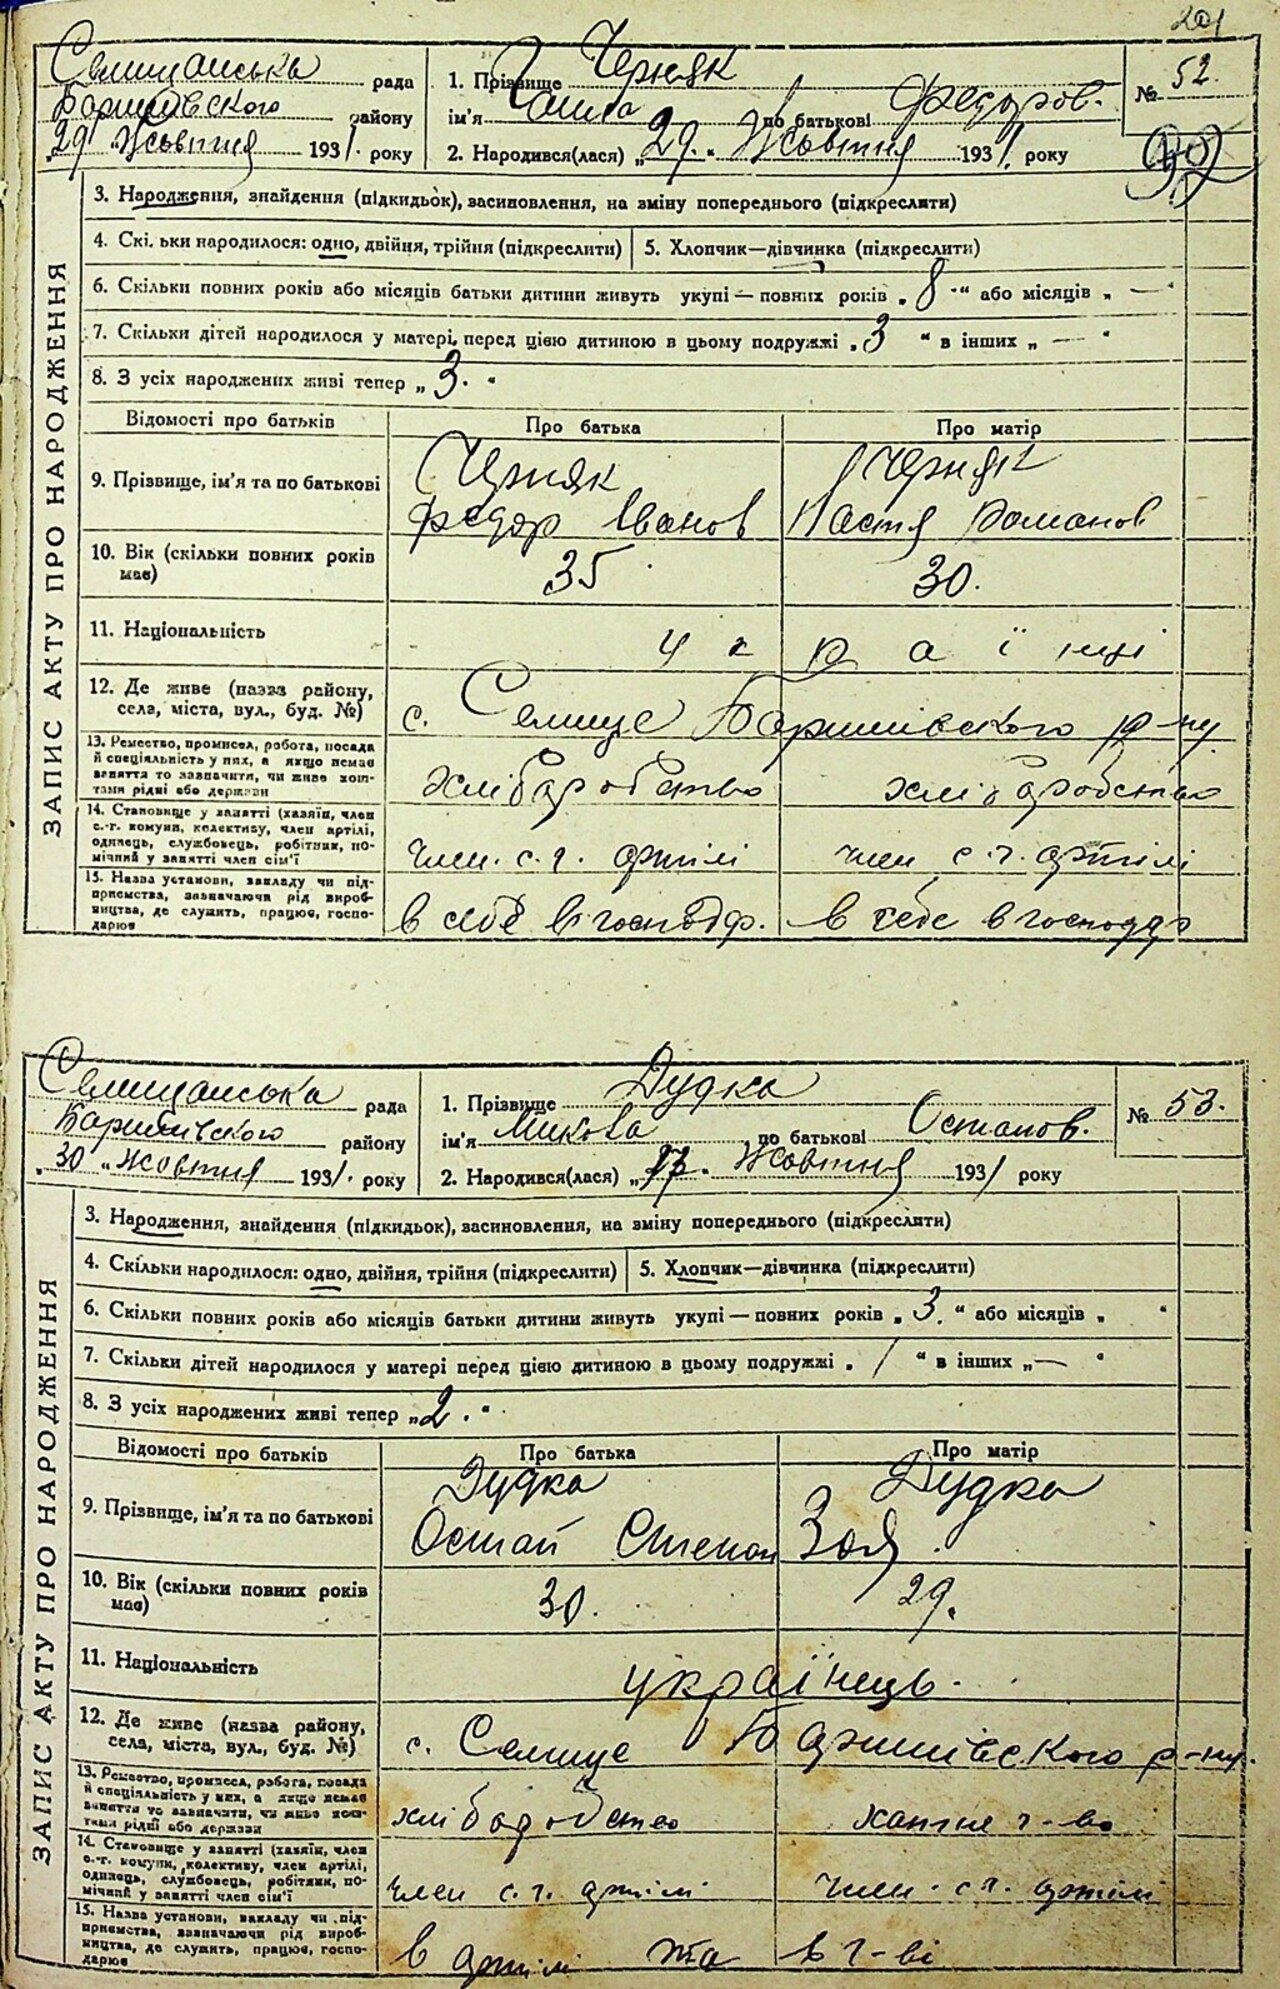 201
Селищанська рада
Баришівского району
„29" Жовтня 1931. року
1. Прізвище Черняк
ім'я по батькові Федоров.
2. Народився(лася) „29." Жовтня 1931. року
№ 52.
3. Народження, знайдення (підкидьок), засиновлення, на зміну попереднього (підкреслити)
4. Скільки народилося: одно, двійня, трійня (підкреслити) 5. Хлопчик—дівчинка (підкреслити)
6. Скільки повних років або місяців батьки дитини живуть укупі — повних років „8" або місяців „—"
7. Скільки дітей народилося у матері перед цією дитиною в цьому подружжі „3" в інших „—"
8. З усіх народжених живі тепер „3."
ЗАПИС АКТУ ПРО НАРОДЖЕННЯ
Відомості про батьків Про батька Про матір
9. Прізвище, ім'я та по батькові
Черняк Черняк
Федор Іванов Настя Романов
10. Вік (скільки повних років має) 35 30.
11. Національність українці
12. Де живе (назва району, села, міста, вул., буд. №)
с. Селище Баришівского р-ну
13. Ремество, промисел, робота, посада й спеціяльність у них, а якщо немає заняття то зазначити, чи живе коштами рідні або держави
хліборобство хліборобство
14. Становище у занятті (хазяїн, член с.-г. комуни, колективу, член артілі, одинець, службовець, робітник, помічний у занятті член сім'ї
член. с. г. артілі член с. г. артілі
15. Назва установи, закладу чи підприємства, зазначаючи рід виробництва, де служить, працює, господарює
в себе в господар. в себе в господар
Селищанська рада
Баришівского району
„30" Жовтня 1931. року
1. Прізвище Дудка
ім'я Микола по батькові Остапов.
2. Народився(лася) „17." Жовтня 1931 року
№ 53.
3. Народження, знайдення (підкидьок), засиновлення, на зміну попереднього (підкреслити)
4. Скільки народилося: одно, двійня, трійня (підкреслити) 5. Хлопчик—дівчинка (підкреслити)
6. Скільки повних років або місяців батьки дитини живуть укупі — повних років „3." або місяців „ "
7. Скільки дітей народилося у матері перед цією дитиною в цьому подружжі „1" в інших „—"
8. З усіх народжених живі тепер „2."
ЗАПИС АКТУ ПРО НАРОДЖЕННЯ
Відомості про батьків Про батька Про матір
9. Прізвище, ім'я та по батькові
Дудка Дудка
Остап Степан Зоя.
10. Вік (скільки повних років має) 30. 29.
11. Національність українець.
12. Де живе (назва району, села, міста, вул., буд. №)
с. Селище Баришівского р-ну.
13. Ремество, промисел, робота, посада й спеціяльність у них, а якщо немає заняття то зазначити, чи живе коштами рідні або держави
хліборобство хатнє г-во
14. Становище у занятті (хазяїн, член с.-г. комуни, колективу, член артілі, одинець, службовець, робітник, помічний у занятті член сім'ї
член с. г. артілі член. с. г. артілі
15. Назва установи, закладу чи підприємства, зазначаючи рід виробництва, де служить, працює, господарює
в артілі та в г-ві